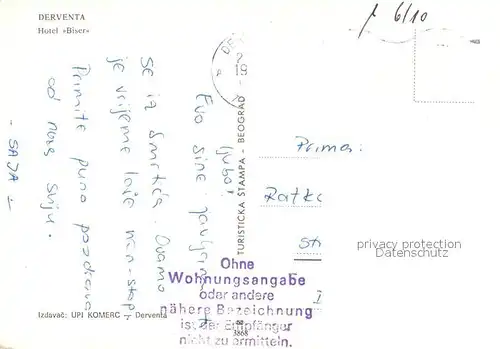 DERVENTA
Hotel »Biser«
6/10
19
Ljubo!
Evo sine javljam
se iz Smrtića. Ovamo
je vrijeme loše non-stop
Primite puno pozdrava
od nas sviju.
- SAJA -
TURISTICKA STAMPA - BEOGRAD
Prima:
Ratko
St
privacy protection
Datenschutz
Ohne
Wohnungsangabe
oder andere
nähere Bezeichnung
ist der Empfänger
nicht zu ermitteln.
I
3868
Izdavač: UPI KOMERC - Derventa